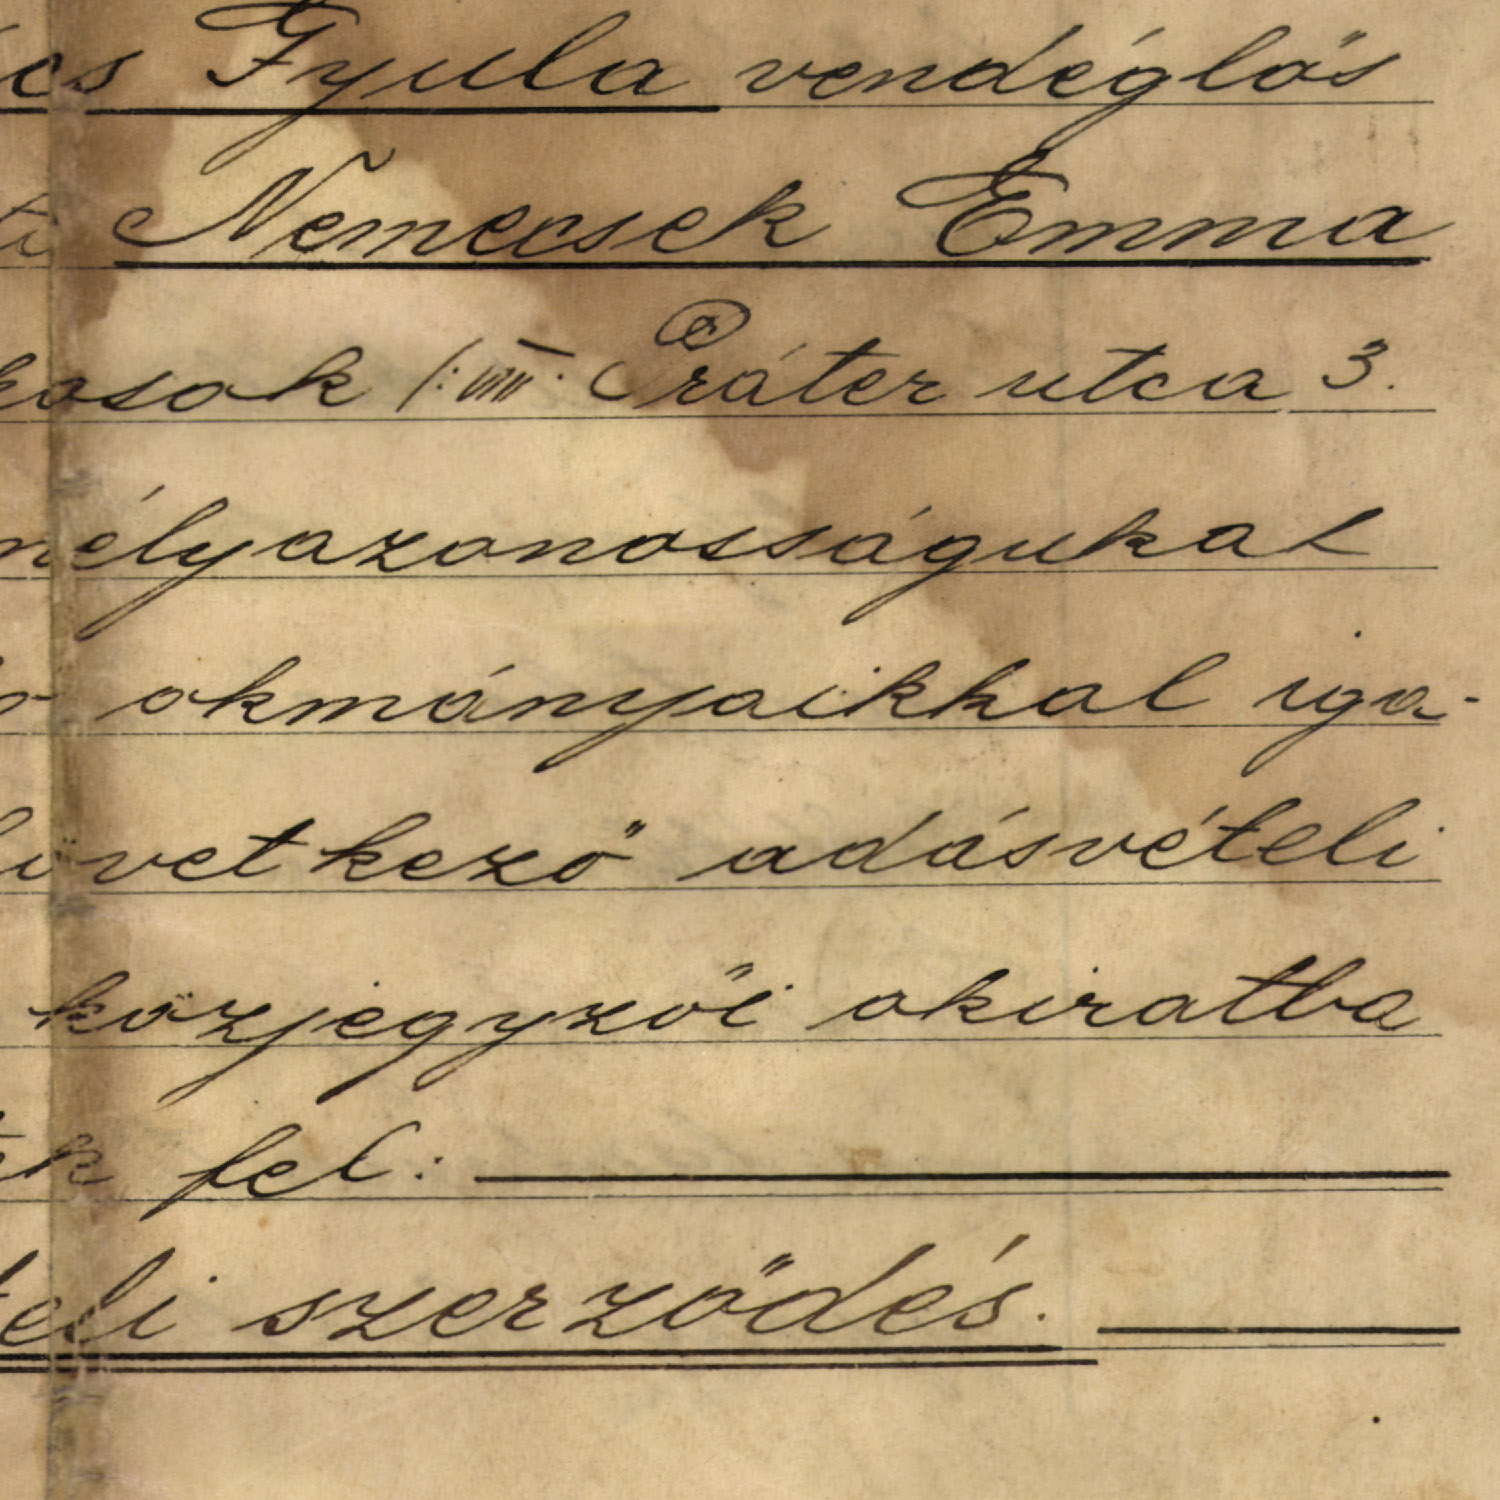 cs Gyula vendéglős
Nemecsek Emma
kosok (: VIII. Práter utca 3.
mélyazonosságukat
okmányaikkal iga-
övetkező adásvételi
közjegyzői okiratba
fel:
teli szerződés.